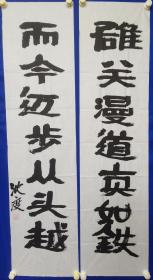 雄关漫道真如鉄
而今迈步从头越
沈慶